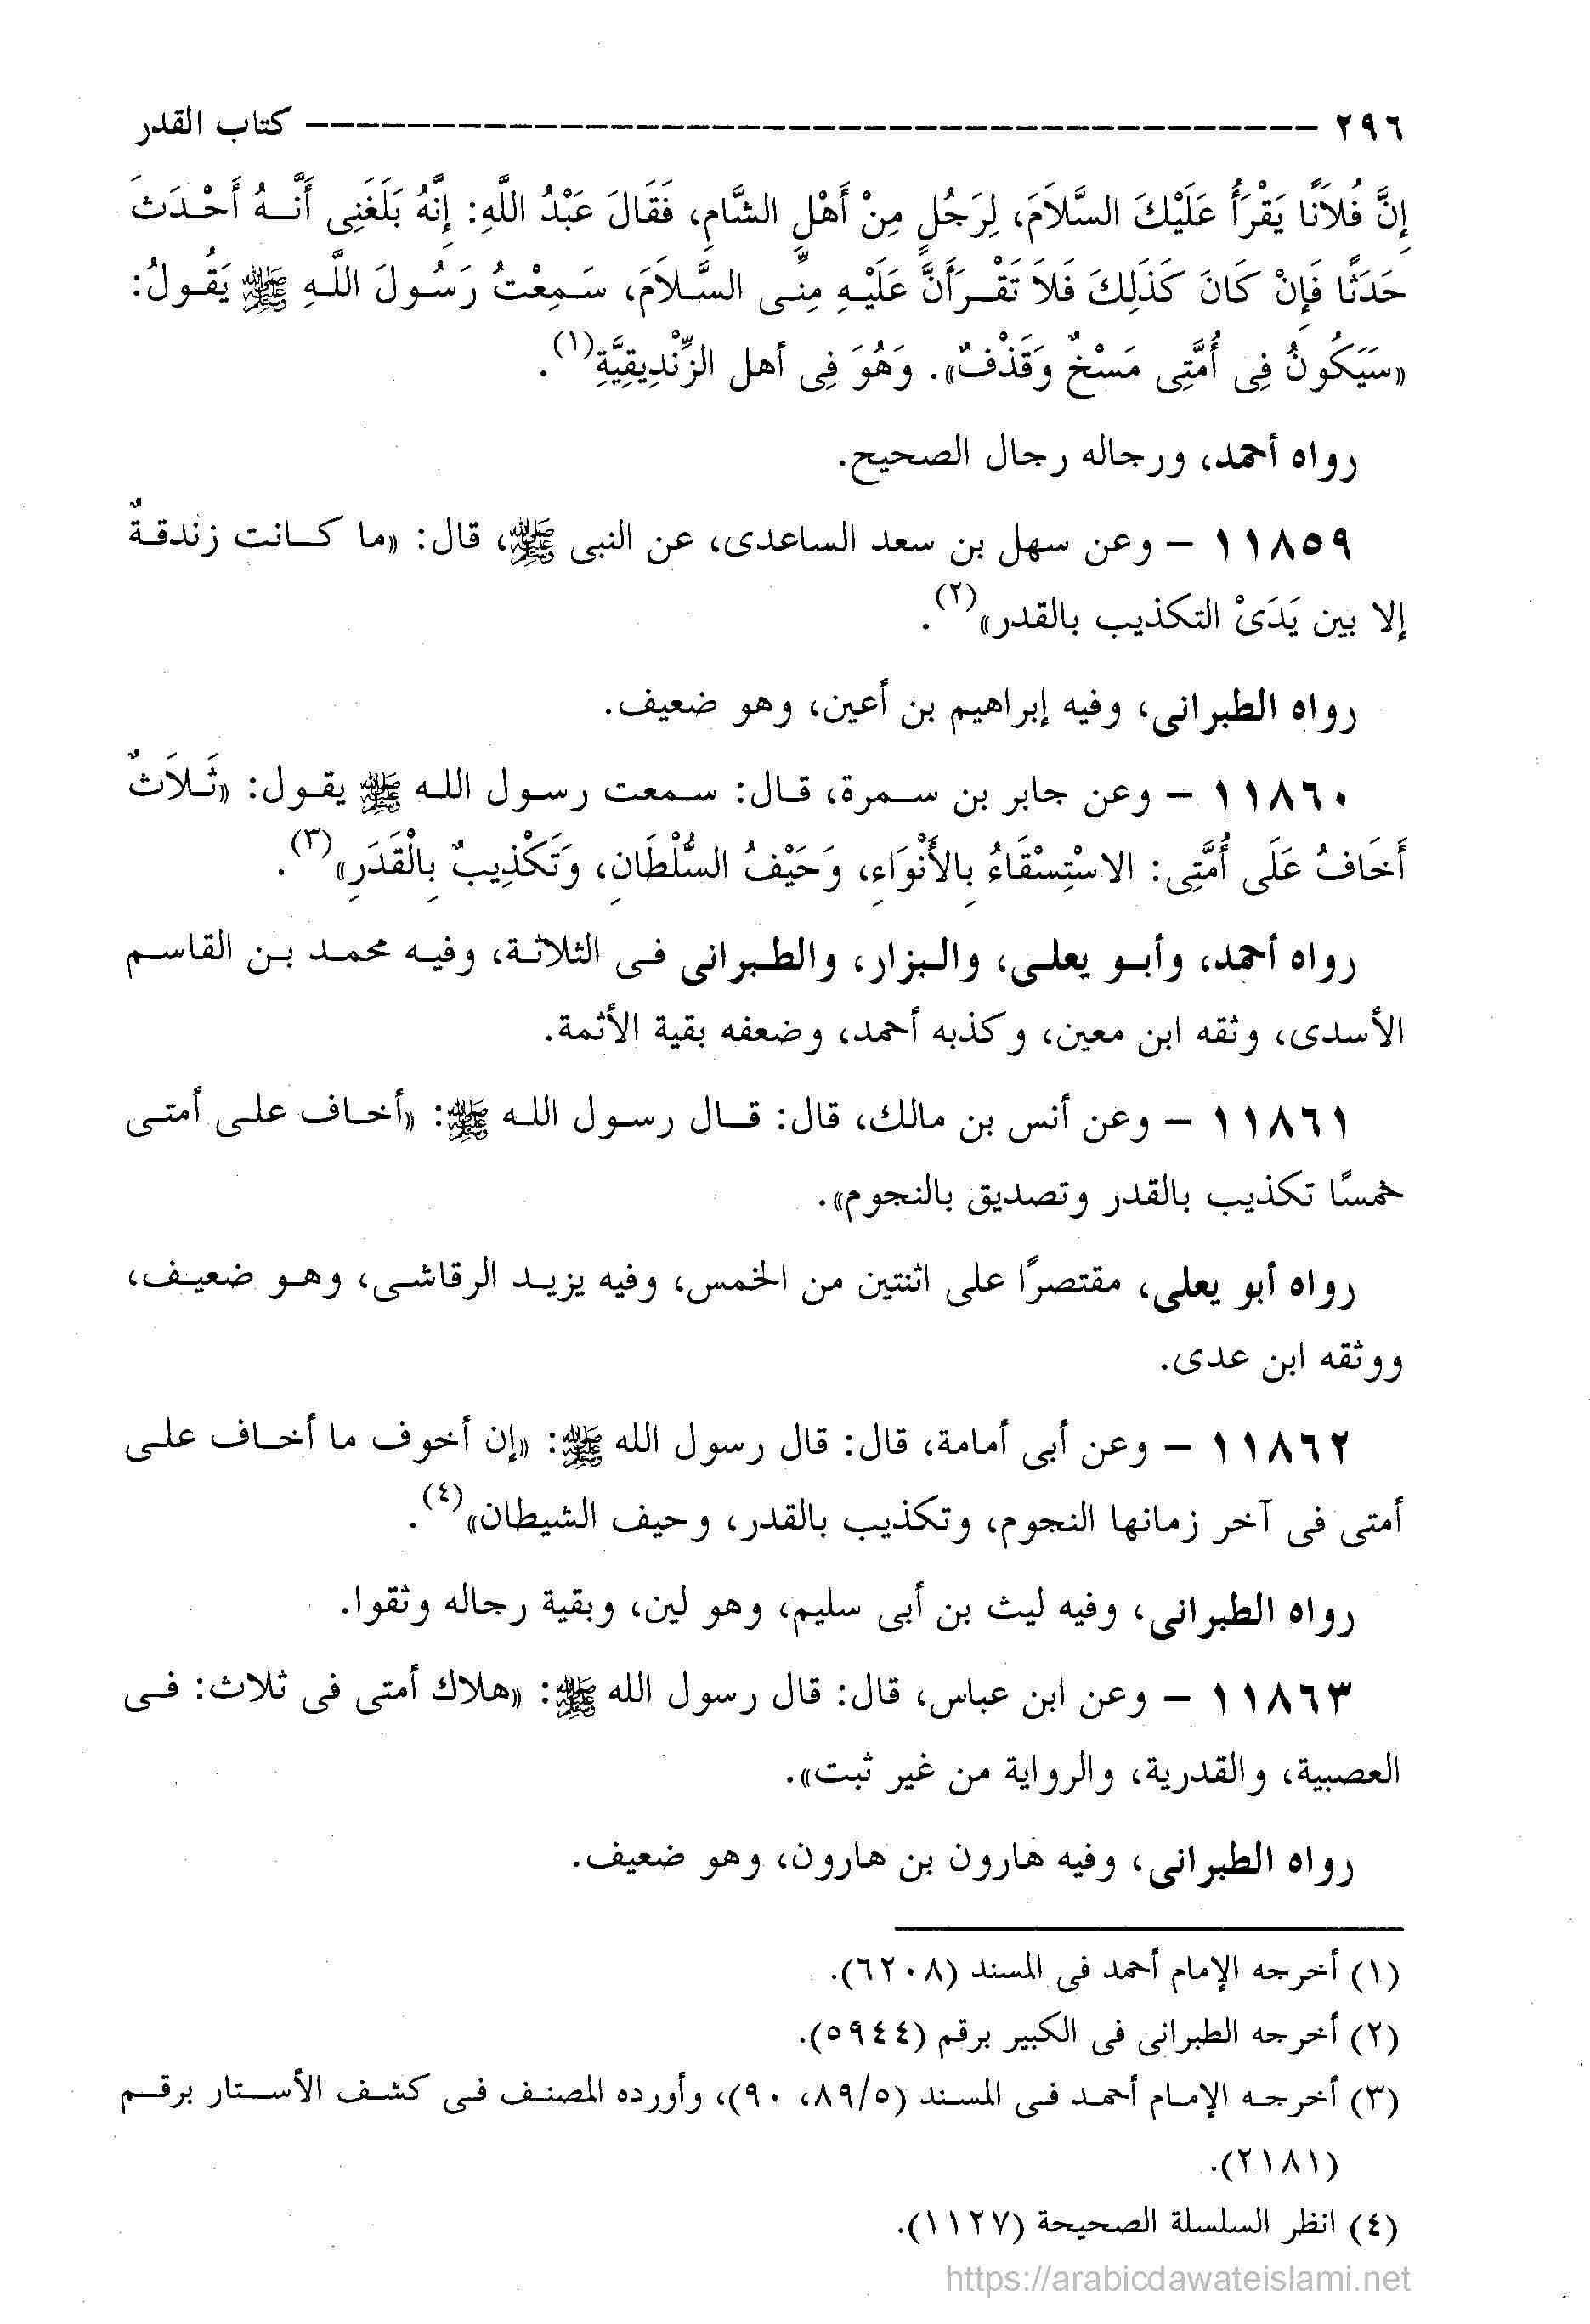 ٢٩٦ ---------------------------------------- كتاب القدر
إِنَّ فُلاَنًا يَقْرَأُ عَلَيْكَ السَّلاَمَ، لِرَجُلٍ مِنْ أَهْلِ الشَّامِ، فَقَالَ عَبْدُ اللَّهِ: إِنَّهُ بَلَغَنِى أَنَّهُ أَحْدَثَ
حَدَثًا فَإِنْ كَانَ كَذَلِكَ فَلاَ تَقْرَأَنَّ عَلَيْهِ مِنِّى السَّلاَمَ، سَمِعْتُ رَسُولَ اللَّهِ ﷺ يَقُولُ:
«سَيَكُونُ فِى أُمَّتِى مَسْخٌ وَقَذْفٌ». وَهُوَ فِى أهل الزِّنْدِيقِيَّةِ(١).
رواه أحمد، ورجاله رجال الصحيح.
١١٨٥٩ – وعن سهل بن سعد الساعدى، عن النبى ﷺ، قال: «ما كانت زندقةٌ
إلا بين يَدَىْ التكذيب بالقدر»(٢).
رواه الطبرانى، وفيه إبراهيم بن أعين، وهو ضعيف.
١١٨٦٠ – وعن جابر بن سمرة، قال: سمعت رسول الله ﷺ يقول: «ثَلاَثٌ
أَخَافُ عَلَى أُمَّتِى: الاسْتِسْقَاءُ بِالأَنْوَاءِ، وَحَيْفُ السُّلْطَانِ، وَتَكْذِيبٌ بِالْقَدَرِ»(٣).
رواه أحمد، وأبو يعلى، والبزار، والطبرانى فى الثلاثة، وفيه محمد بن القاسم
الأسدى، وثقه ابن معين، وكذبه أحمد، وضعفه بقية الأئمة.
١١٨٦١ – وعن أنس بن مالك، قال: قال رسول الله ﷺ: «أخاف على أمتى
خمسًا تكذيب بالقدر وتصديق بالنجوم».
رواه أبو يعلى، مقتصرًا على اثنتين من الخمس، وفيه يزيد الرقاشى، وهو ضعيف،
ووثقه ابن عدى.
١١٨٦٢ – وعن أبى أمامة، قال: قال رسول الله ﷺ: «إن أخوف ما أخاف على
أمتى فى آخر زمانها النجوم، وتكذيب بالقدر، وحيف الشيطان»(٤).
رواه الطبرانى، وفيه ليث بن أبى سليم، وهو لين، وبقية رجاله وثقوا.
١١٨٦٣ – وعن ابن عباس، قال: قال رسول الله ﷺ: «هلاك أمتى فى ثلاث: فى
العصبية، والقدرية، والرواية من غير ثبت».
رواه الطبرانى، وفيه هارون بن هارون، وهو ضعيف.
(١) أخرجه الإمام أحمد فى المسند (٦٢٠٨).
(٢) أخرجه الطبرانى فى الكبير برقم (٥٩٤٤).
(٣) أخرجه الإمام أحمد فى المسند (٨٩/٥، ٩٠)، وأورده المصنف فى كشف الأستار برقم
(٢١٨١).
(٤) انظر السلسلة الصحيحة (١١٢٧).
https://arabicdawateislami.net